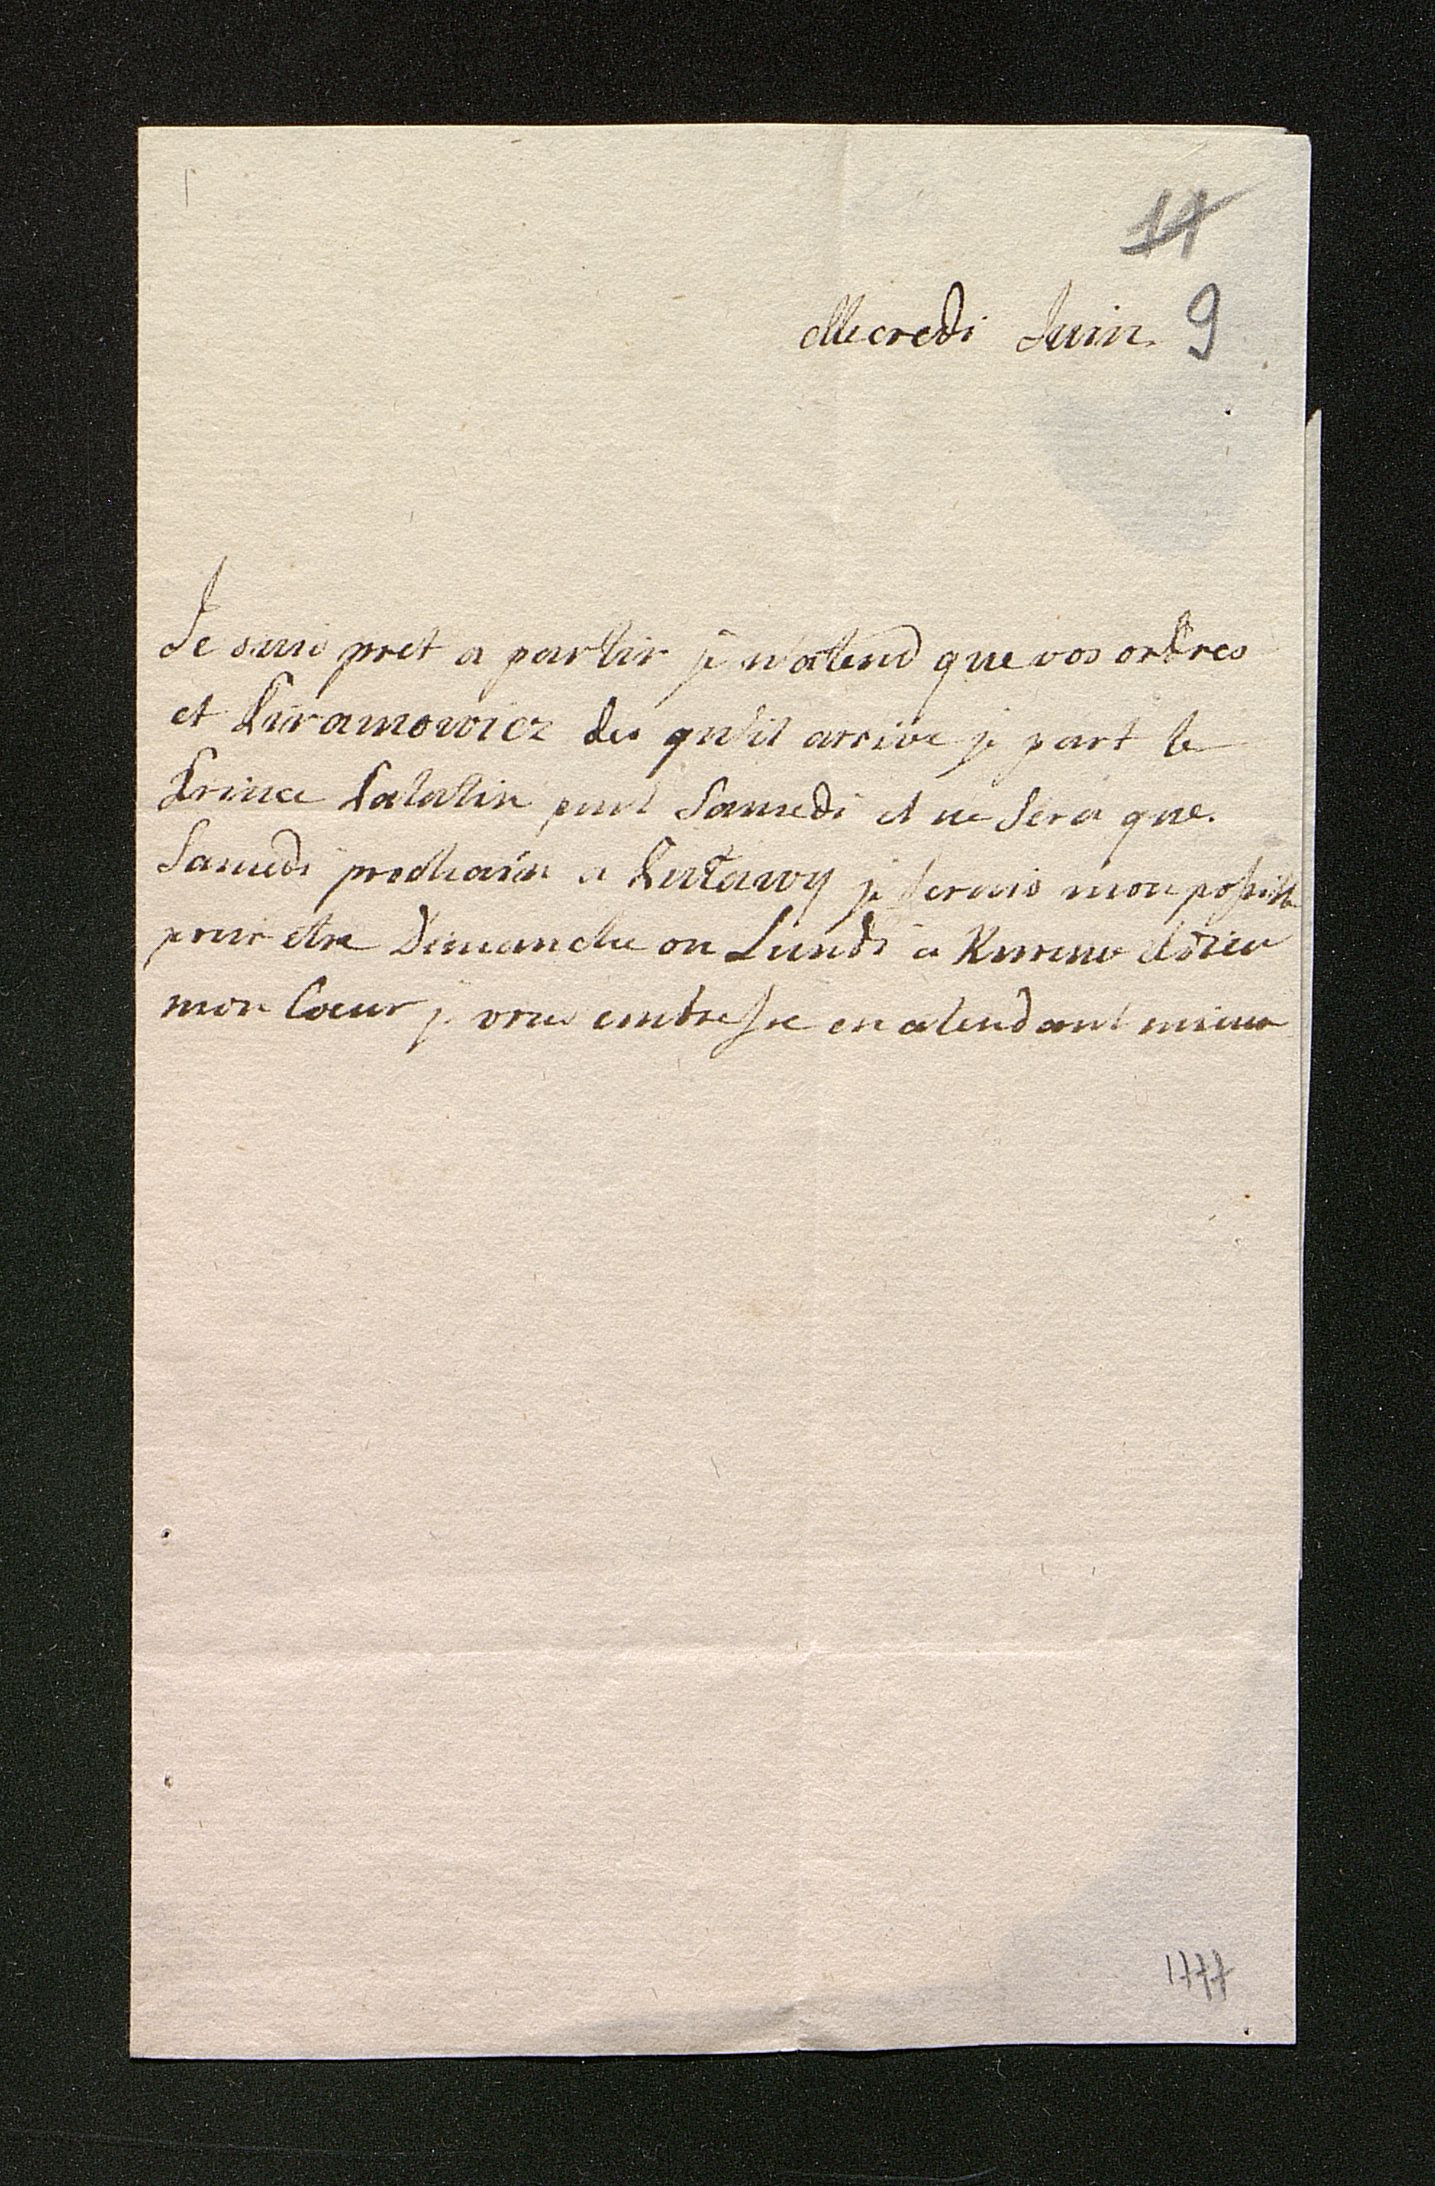 11
Mecredi Juin. 9
Je suis pret a partir je n'atend que vos ordres
et Piramowicz des qu'il arrive je part le
Prince Palatin part Samedi et ne sera que.
Samedi prochain a Pulawy je ferais mon possible
pour etre Dimanche ou Lundi a Kurow Adieu
mon Coeur je vous embrasse en atendant mieux
1777